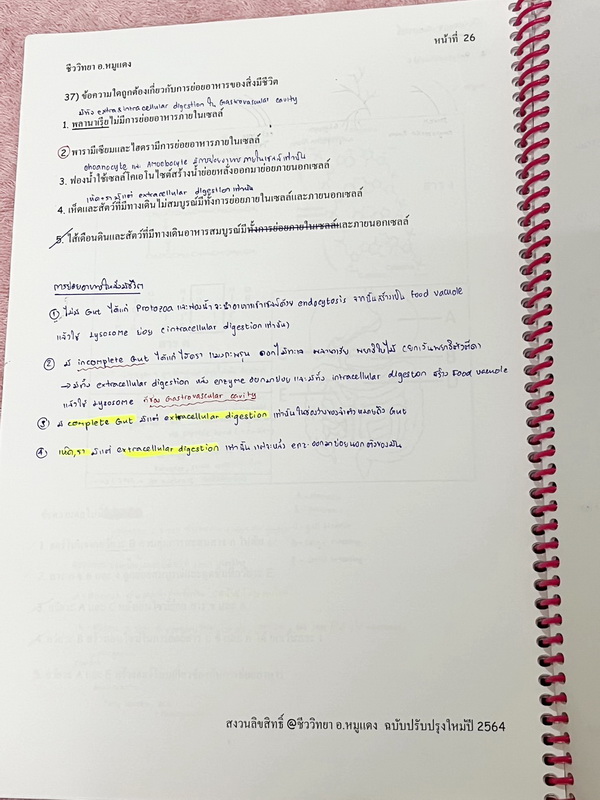 ชีววิทยา อ.หมูแดง
หน้าที่ 26
37) ข้อความใดถูกต้องเกี่ยวกับการย่อยอาหารของสิ่งมีชีวิต
มีทั้ง extra & intracellular digestion ใน Gastrovascular cavity
1. พลานาเรียไม่มีการย่อยอาหารภายในเซลล์
2 พารามีเซียมและไฮดรามีการย่อยอาหารภายในเซลล์
choanocyte และ Amoebocyte มีการย่อยอาหารภายในเซลล์เท่านั้น
3. ฟองน้ำใช้เซลล์โคเอโนไซต์สร้างน้ำย่อยหลั่งออกมาย่อยภายนอกเซลล์
เห็ดรามีแต่ extracellular digestion เท่านั้น
4. เห็ดและสัตว์ที่มีทางเดินไม่สมบูรณ์มีทั้งการย่อยภายในเซลล์และภายนอกเซลล์
5. ไส้เดือนดินและสัตว์ที่มีทางเดินอาหารสมบูรณ์มีทั้งการย่อยภายในเซลล์และภายนอกเซลล์
การย่อยอาหารในสิ่งมีชีวิต
① ไม่มี Gut ได้แก่ Protozoa และฟองน้ำ จะนำอาหารเข้าเซลล์ด้วย endocytosis จากนั้นสร้างเป็น food vacuole
แล้วใช้ Lysosome ย่อย (intracellular digestion เท่านั้น)
② มี incomplete Gut ได้แก่ ไฮดรา แมงกะพรุน ดอกไม้ทะเล พลานาเรีย พยาธิใบไม้ (ยกเว้นพยาธิตัวตืด)
→ มีทั้ง extracellular digestion หลั่ง enzyme ออกมาย่อย และมีทั้ง intracellular digestion สร้าง Food vacuole
แล้วใช้ Lysosome ที่ช่อง Gastrovascular cavity
③ มี complete Gut มีแต่ extracellular digestion เท่านั้น Gut
④ เห็ด, รา มีแต่ extracellular digestion เท่านั้น
สงวนลิขสิทธิ์ @ชีววิทยา อ.หมูแดง ฉบับปรับปรุงใหม่ปี 2564